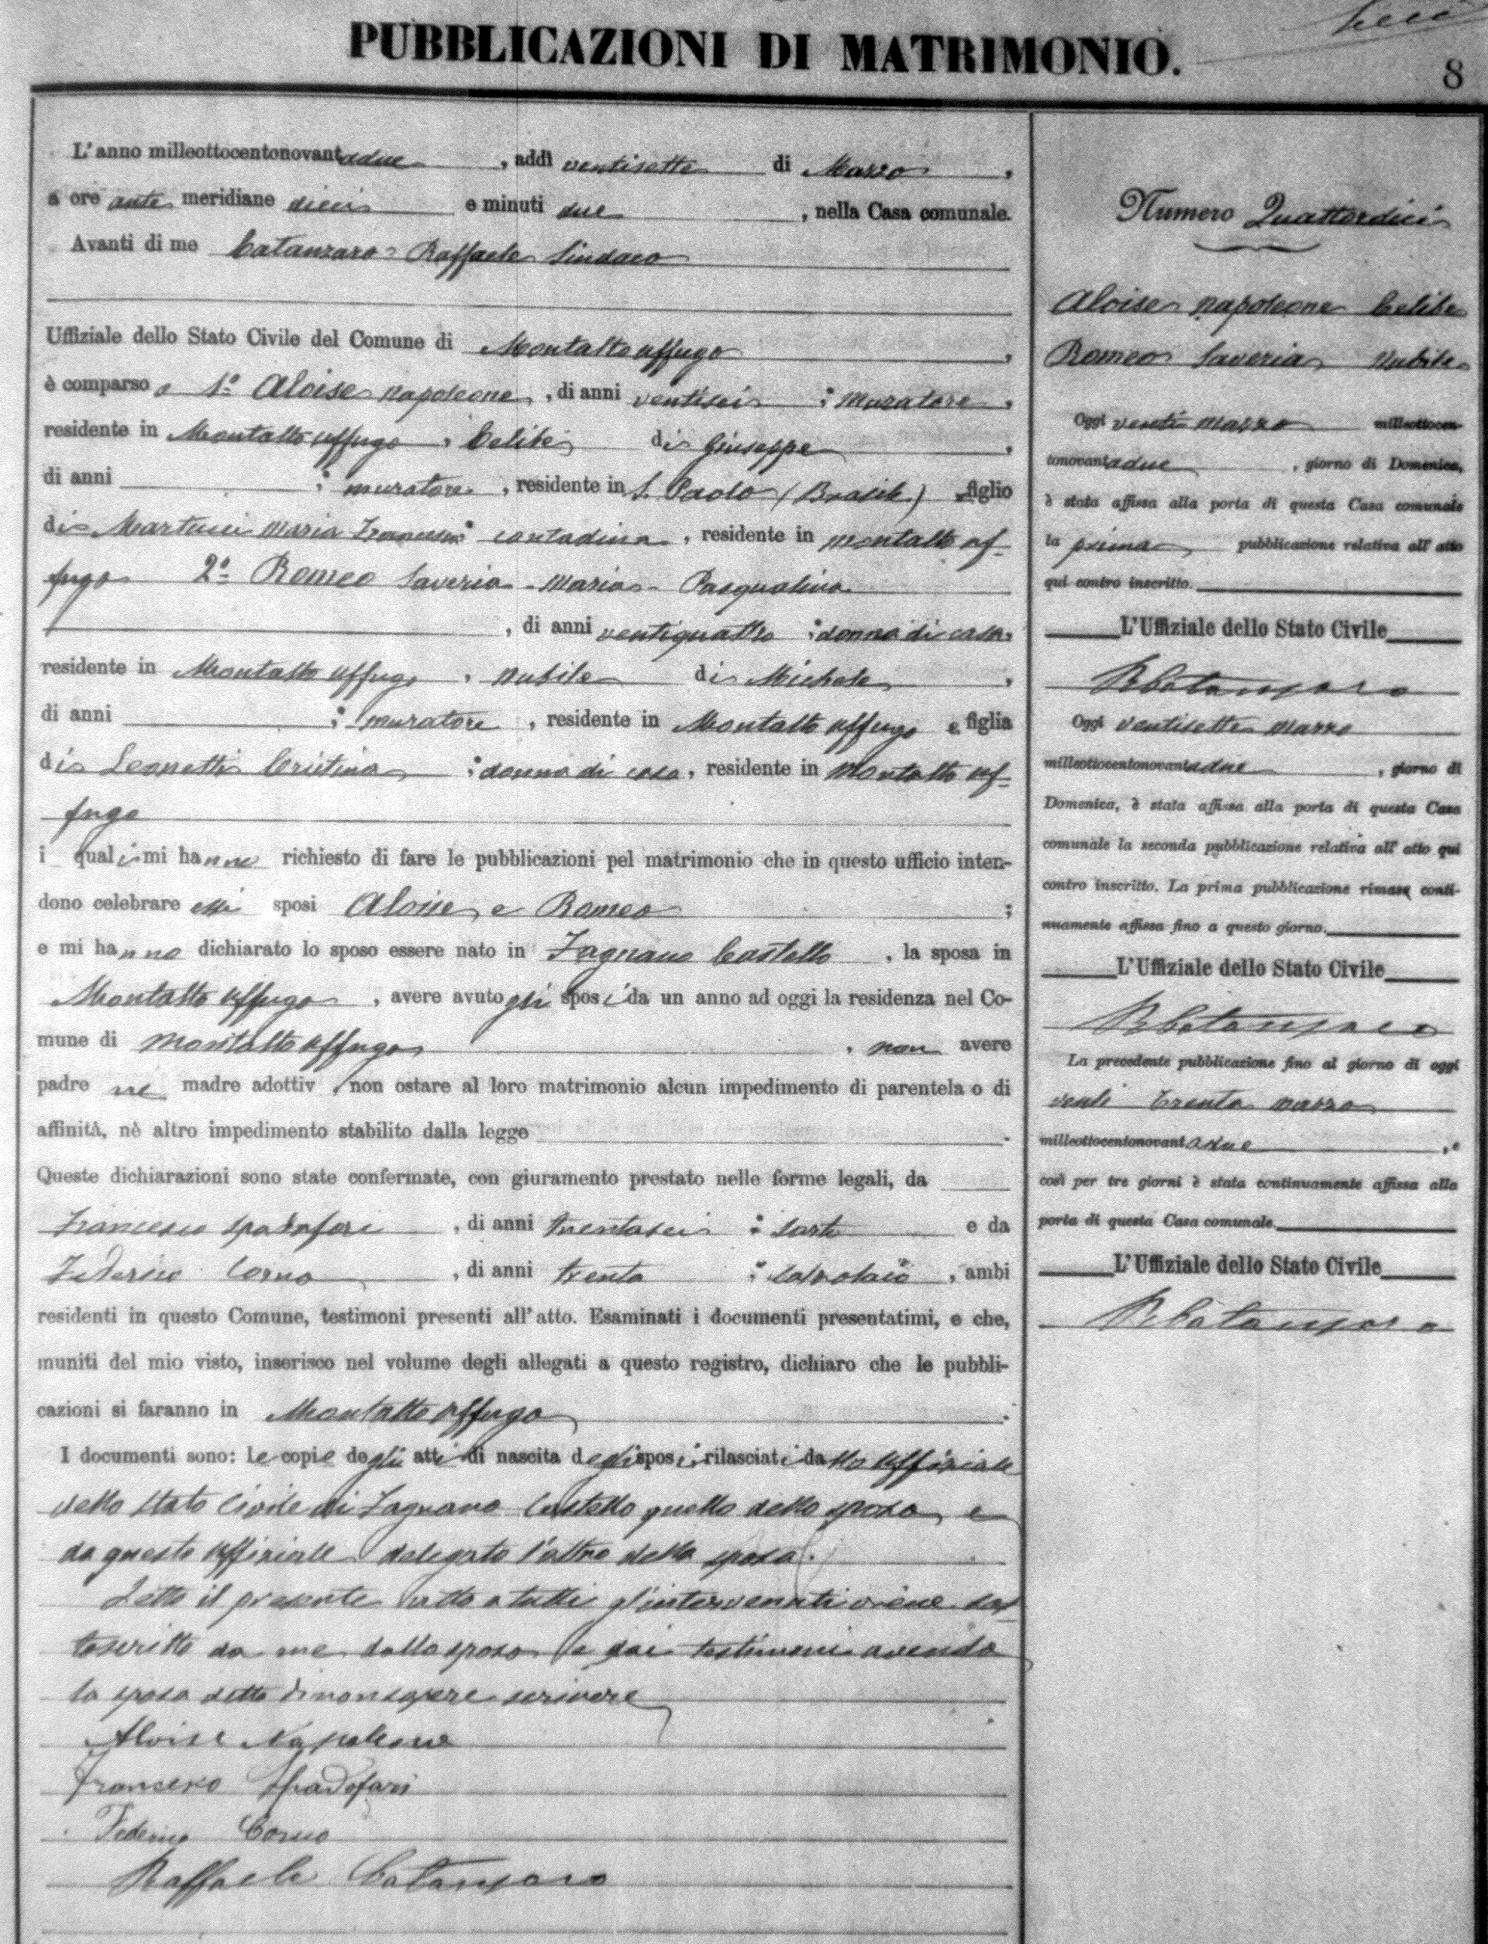 PUBBLICAZIONI DI MATRIMONIO.
8
L'anno milleottocentonovantadue, addì ventisette di Marzo,
a ore ante meridiane dieci e minuti due, nella Casa comunale.
Avanti di me Catanzaro Raffaele Sindaco
Uffiziale dello Stato Civile del Comune di Montalto Uffugo,
è comparso 1º Aloise Napoleone, di anni ventisei; muratore,
residente in Montalto Uffugo, Celibe di Giuseppe,
di anni ; muratore, residente in S. Paolo (Brasile) figlio
di Martucci Maria Francesca; contadina, residente in Montalto Uf-
fugo 2º Romeo Saveria-Maria-Pasqualina
, di anni ventiquattro; donna di casa,
residente in Montalto Uffugo, nubile di Michele,
di anni ; muratore, residente in Montalto Uffugo e figlia
di Leonetti Cristina; donna di casa, residente in Montalto Uf-
fugo
i quali mi hanno richiesto di fare le pubblicazioni pel matrimonio che in questo ufficio inten-
dono celebrare essi sposi Aloise e Romeo;
e mi hanno dichiarato lo sposo essere nato in Fagnano Castello, la sposa in
Montalto Uffugo, avere avuto gli sposi da un anno ad oggi la residenza nel Co-
mune di Montalto Uffugo, non avere
padre nè madre adottiv , non ostare al loro matrimonio alcun impedimento di parentela o di
affinità, nè altro impedimento stabilito dalla legge.
Queste dichiarazioni sono state confermate, con giuramento prestato nelle forme legali, da
Francesco Spadafori, di anni trentasei; sarto e da
Federico Corno, di anni trenta; calzolaio, ambi
residenti in questo Comune, testimoni presenti all'atto. Esaminati i documenti presentatimi, e che,
muniti del mio visto, inserisco nel volume degli allegati a questo registro, dichiaro che le pubbli-
cazioni si faranno in Montalto Uffugo.
I documenti sono: Le copie degli atti di nascita degli sposi rilasciati dallo Uffiziale
dello Stato Civile di Fagnano Castello quello dello sposo, e
da questo uffiziale delegato l'altro della sposa.
Letto il presente atto a tutti gl'intervenuti viene sot-
toscritto da me dallo sposo e dai testimoni avendo
la sposa detto di non sapere scrivere
Aloise Napoleone
Francesco Spadafori
Federico Corno
Raffaele Catanzaro
Numero Quattordici
Aloise Napoleone Celibe
Romeo Saveria Nubile
Oggi venti Marzo milleottocen-
tonovantadue, giorno di Domenica,
è stata affissa alla porta di questa Casa comunale
la prima pubblicazione relativa all'atto
qui contro inscritto.
L'Uffiziale dello Stato Civile
RCatanzaro
Oggi ventisette Marzo
milleottocentonovantadue, giorno di
Domenica, è stata affissa alla porta di questa Casa
comunale la seconda pubblicazione relativa all'atto qui
contro inscritto. La prima pubblicazione rimase conti-
nuamente affissa fino a questo giorno.
L'Uffiziale dello Stato Civile
RCatanzaro
La precedente pubblicazione fino al giorno di oggi
venti trenta marzo
milleottocentonovantadue, e
così per tre giorni è stata continuamente affissa alla
porta di questa Casa comunale.
L'Uffiziale dello Stato Civile
RCatanzaro